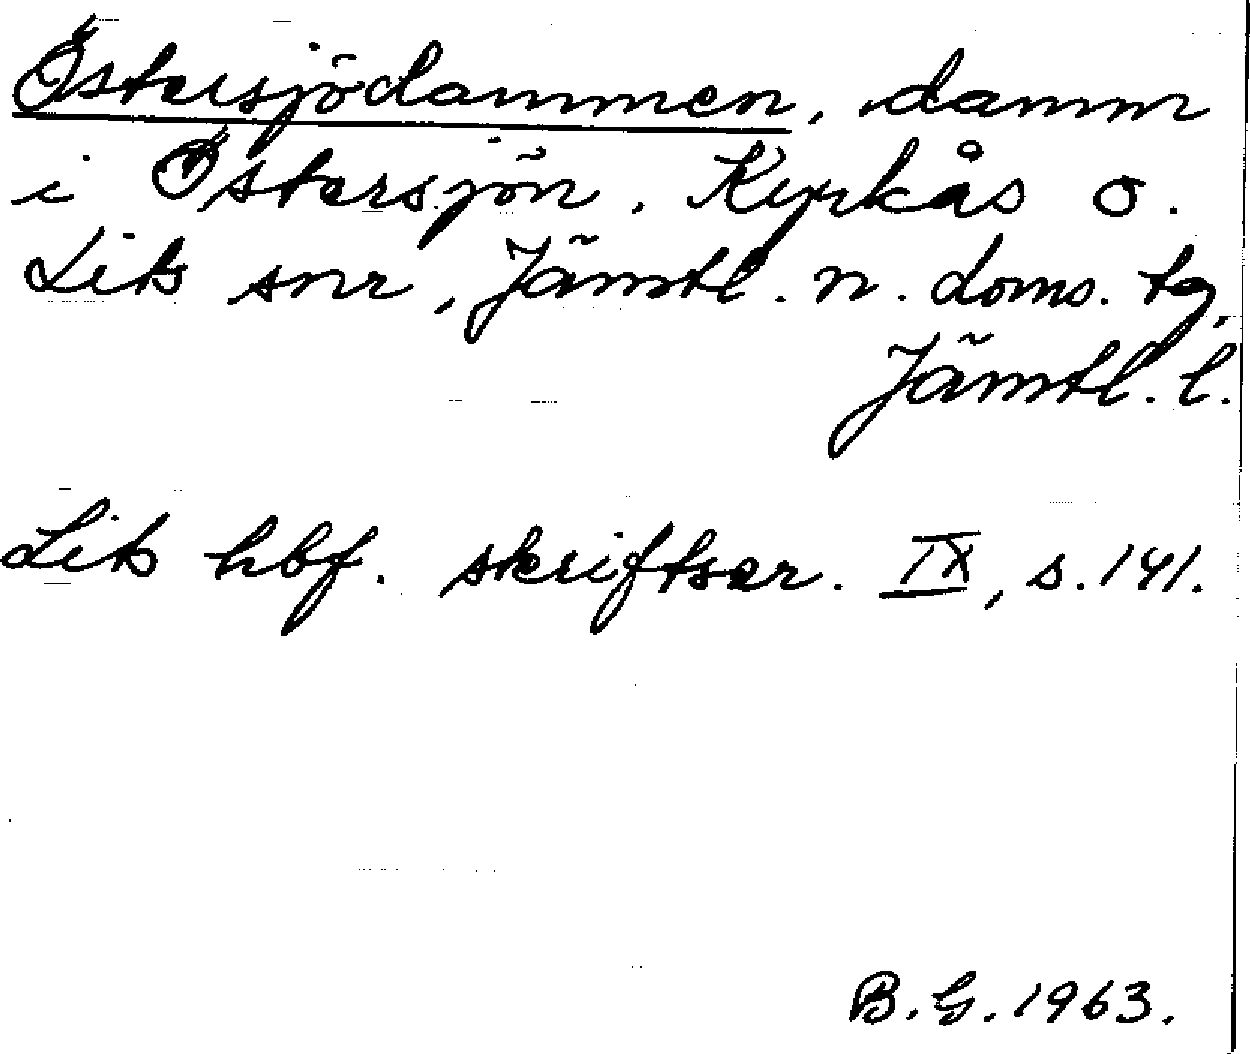 Östersjödammen, damm
i Östersjön, Kyrkås o.
Lits snr, Jämtl. n. doms. tg,
Jämtl. l.
Lits hbf. skriftser. IX, s. 141.
B. G. 1963.